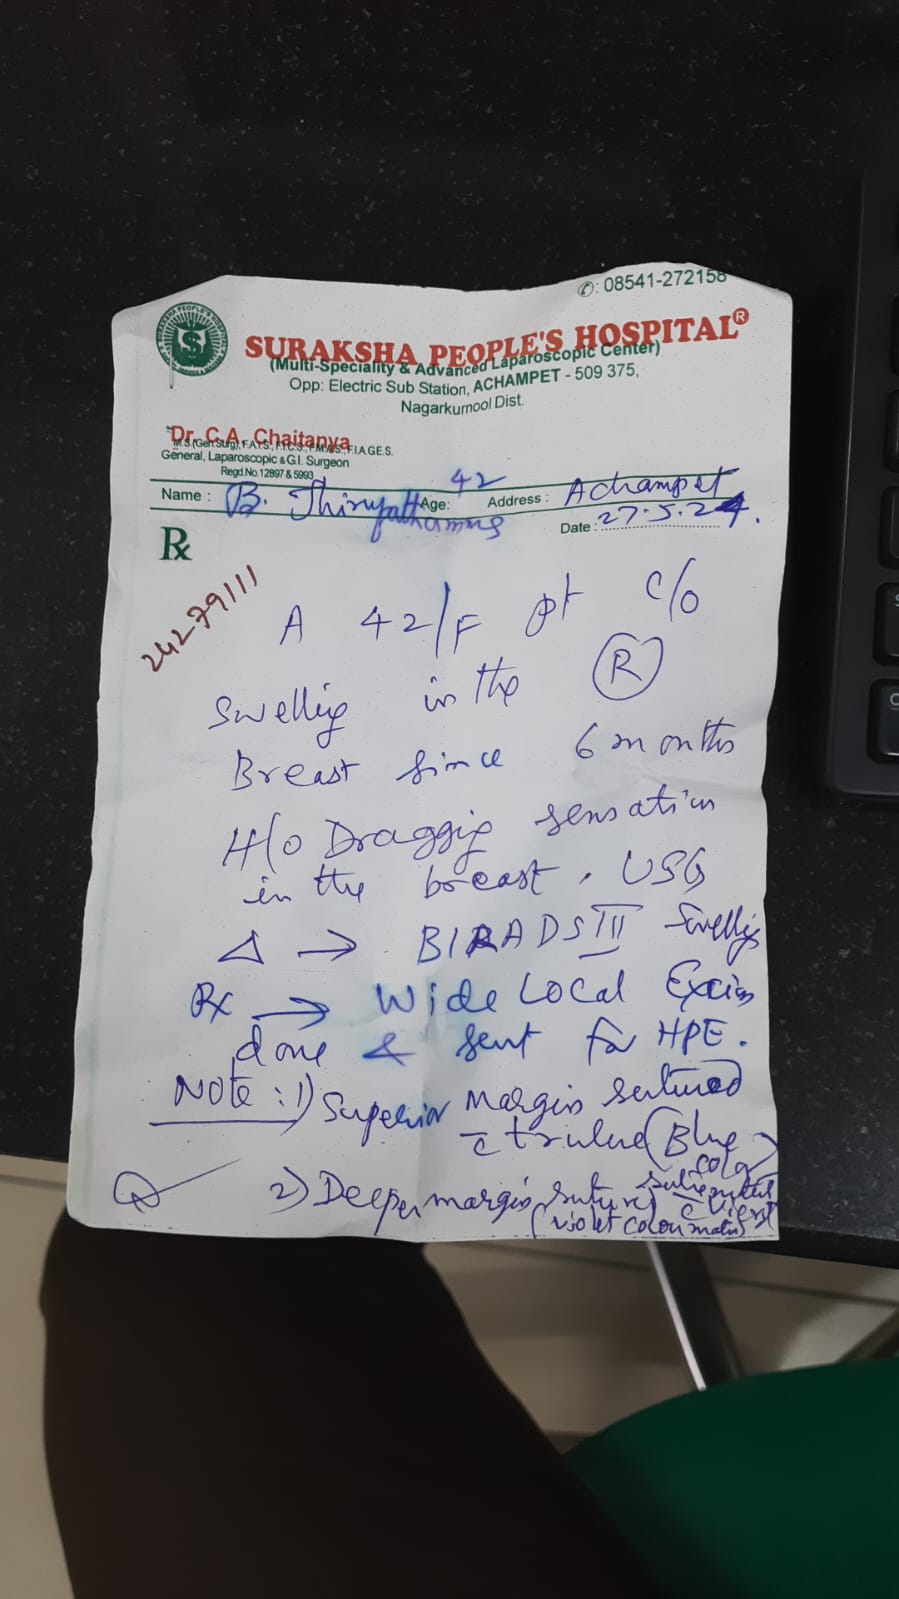 ✆: 08541-272158
SURAKSHA PEOPLE'S HOSPITAL®
(Multi-Speciality & Advanced Laparoscopic Center)
Opp: Electric Sub Station, ACHAMPET - 509 375,
Nagarkurnool Dist.
Dr. C.A. Chaitanya
M.S (Gen Surg), F.A.I.S., F.I.C.S., F.M.A.S., F.I.A.G.E.S.
General, Laparoscopic & G.I. Surgeon
Regd.No.12897 & 5993
Name : B. Age: 42 Address : Achampet
Date : 27.5.24.
Rx
24279111
A 42/F pt c/o
Swelling in the (R)
Breast since 6 months
H/o Dragging sensation
in the breast. USG
Δ → BIRADS III Swelling
Rx → Wide Local Excision
done & sent for HPE.
Note: 1) Superior Margin sutured
c̄ (Blue
color)
2) Deeper margin sutured
(violet colour